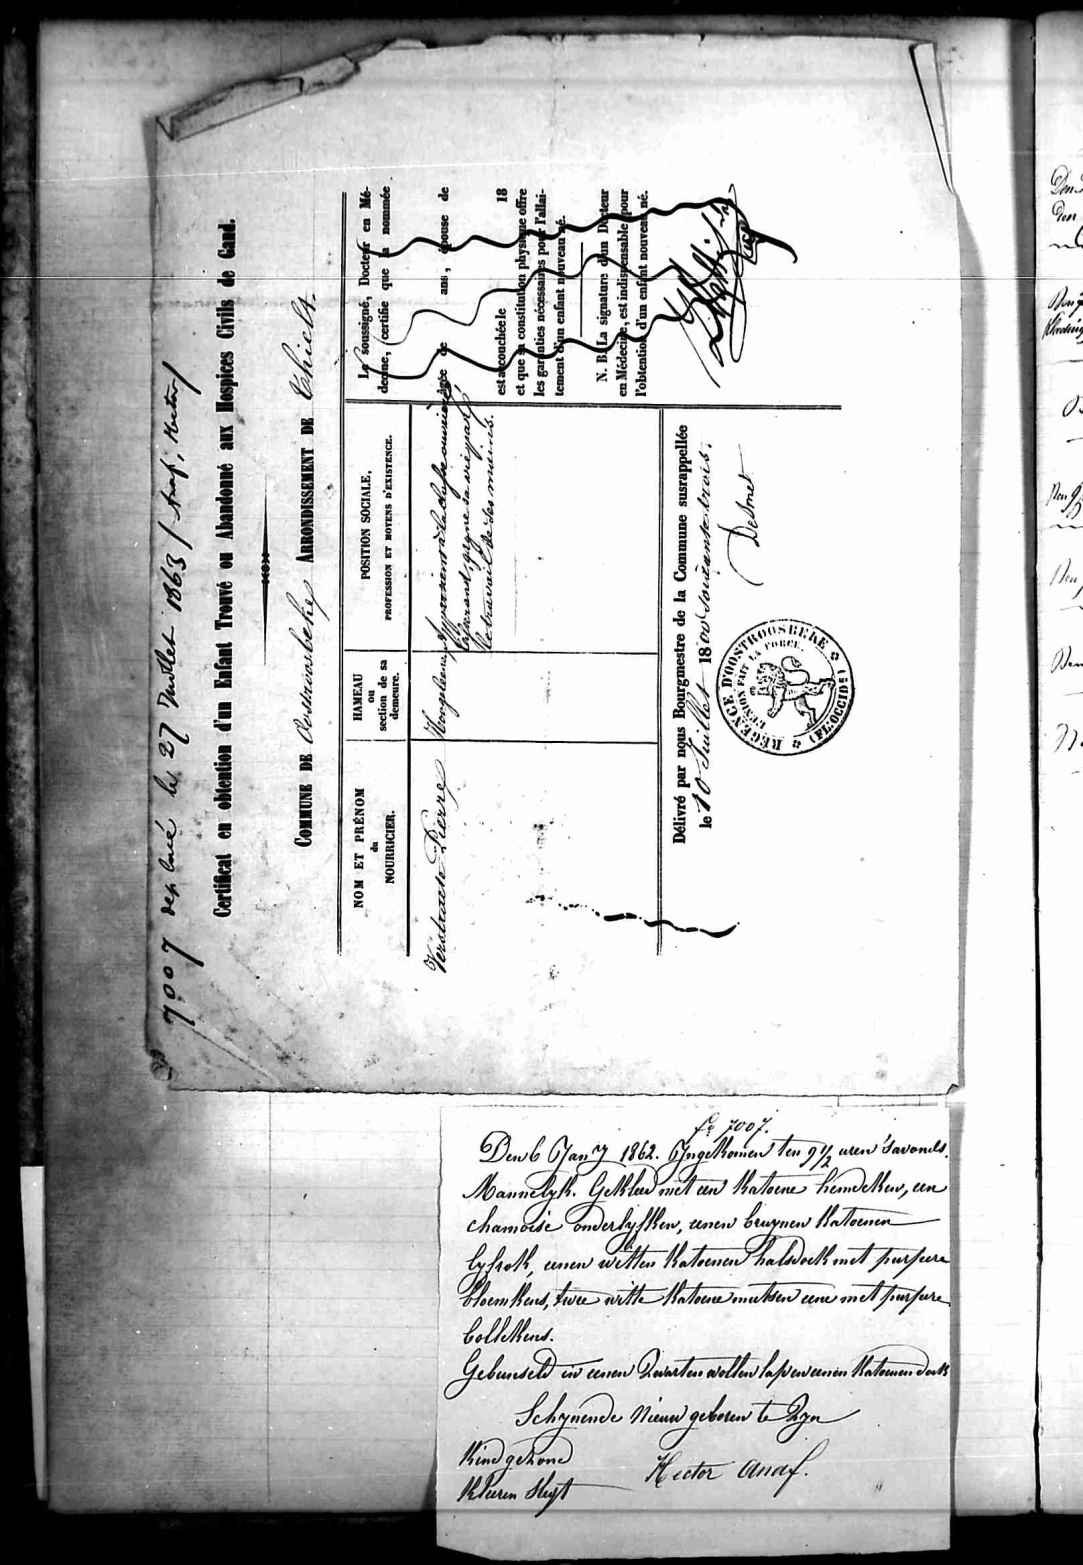 7007 replacé le 27 Juillet 1863 / Anaf, Hector /
Certificat en obtention d'un Enfant Trouvé ou Abandonné aux Hospices Civils de Gand.
COMMUNE DE Oostroosbeke ARRONDISSEMENT DE Thielt.
NOM ET PRÉNOM
du
NOURRICIER.
HAMEAU
ou
section de sa
demeure.
POSITION SOCIALE,
PROFESSION ET MOYENS D'EXISTENCE.
Verstraete Pierre
gagne sa vie par
le travail de ses mains.
Le soussigné, Docteur en Mé-
decine, certifie que la nommée
âgée de ans, épouse de
est accouchée le 18
et que sa constitution physique offre
les garanties nécessaires pour l'allai-
tement d'un enfant nouveau né.
N. B. La signature d'un Docteur
en Médecine, est indispensable pour
l'obtention d'un enfant nouveau né.
Délivré par nous Bourgmestre de la Commune susrappellée
le 10 Juillet 18 soixante trois.
Desmet
REGENCE D'OOSTROOSBEKE
L'UNION FAIT LA FORCE.
(FL: OCCID:)
7007.
Den 6 Jany 1862. Ingekomen ten 9 1/2 uren 's avonds.
Mannelyk. Gekleed met een katoene hemdeken, een
chamoisé onderlyfken, eenen bruynen katoenen
lyfrok, eenen witten katoenen halsdoek met purpere
bloemkens, twee witte katoene mutsen eene met purpere
bollekens.
Gebunseld in eenen zwarten wollen lap en eenen katoenen doek
Schynende nieuw geboren te zyn
Kind gezond
Kleeren slegt
Hector Anaf.